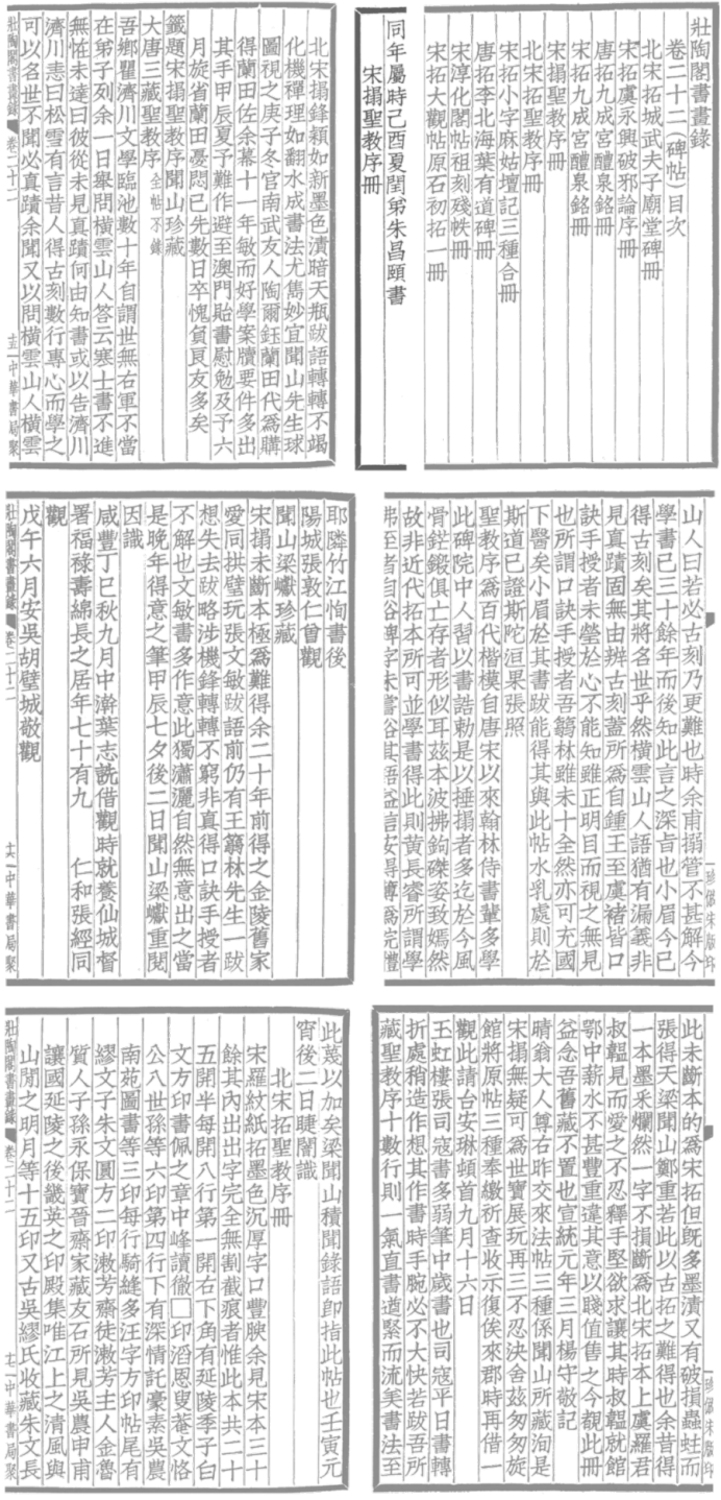 壯陶閣書畫錄
卷二十二(碑帖)目次
北宋拓城武夫子廟堂碑冊
宋拓虞永興破邪論序冊
唐拓九成宮醴泉銘冊
宋拓九成宮醴泉銘冊
宋搨聖教序冊
北宋拓聖教序冊
宋拓小字麻姑壇記三種合冊
唐拓李北海葉有道碑冊
宋淳化閣帖祖刻殘帙冊
宋拓大觀帖原石初拓一冊
同年屬時己酉夏閏弟朱昌頤書
宋搨聖教序冊
北宋搨鋒穎如新墨色漬暗天瓶跋語轉轉不竭
化機禪理如翻水成書法尤雋妙宜聞山先生球
圖視之庚子冬官南武友人陶爾鈺蘭田代為購
得蘭田佐余幕十一年敏而好學案牘要件多出
其手甲辰夏予難作避至澳門貽書慰勉及予六
月旋省蘭田憂悶已先數日卒愧負良友多矣
籤題宋搨聖教序聞山珍藏
大唐三藏聖教序 全帖不錄
吾鄉瞿濟川文學臨池數十年自謂世無右軍不當
在弟子列余一日舉問橫雲山人答云寒士書不進
無恠未達曰彼從未見真蹟何由知書或以告濟川
濟川恚曰松雪有言昔人得古刻數行專心而學之
可以名世不聞必真蹟余聞又以問橫雲山人橫雲
壯陶閣書畫錄 卷二十二 十五 中華書局聚
山人曰若必古刻乃更難也時余甫搦管不甚解今
學書已三十餘年而後知此言之深旨也小眉今已
得古刻矣其將名世乎然橫雲山人語猶有漏義非
見真蹟固無由辨古刻蓋所為自鍾王至虞褚皆口
訣手授者未瑩於心不能知雖正明目而視之無見
也所謂口訣手授者吾篛林雖未十全然亦可充國
下醫矣小眉於其書跋能得其與此帖水乳處則於
斯道已證斯陀洹果張照
聖教序為百代楷模自唐宋以來翰林侍書輩多學
此碑院中人習以書誥勅是以捶搨者多迄於今風
骨鋩鎩俱亡存者形似耳茲本波拂鉤磔姿致嫣然
故非近代拓本所可並學書得此則黃長睿所謂學
弗至者自俗碑字未嘗俗其語益信安得導為完體
耶隣竹江恂書後
陽城張敦仁曾觀
聞山梁巘珍藏
宋搨未斷本極為難得余二十年前得之金陵舊家
愛同拱璧玩張文敏跋語前仍有王篛林先生一跋
想失去跋略涉機鋒轉轉不窮非真得口訣手授者
不解也文敏書多作意此獨瀟灑自然無意出之當
是晚年得意之筆甲辰七夕後二日聞山梁巘重閱
因識
咸豐丁巳秋九月中澣葉志詵借觀時就養仙城督
署福祿壽綿長之居年七十有九 仁和張經同
觀
戊午六月安吳胡璧城敬觀
壯陶閣書畫錄 卷二十二 十六 中華書局聚
此未斷本的為宋拓但既多墨漬又有破損蟲蛀而
張得天梁聞山鄭重若此以古拓之難得也余昔得
一本墨釆爛然一字不損斷為北宋拓本上虞羅君
叔韞見而愛之不忍釋手堅欲求讓其時叔韞就館
鄂中薪水不甚豐重違其意以賤值售之今覩此冊
益念吾舊藏不置也宣統元年三月楊守敬記
晴翁大人尊右昨交來法帖三種係聞山所藏洵是
宋搨無疑可為世寶展玩再三不忍決舍茲匆匆旋
館將原帖三種奉繳祈查收示復俟來郡時再借一
觀此請台安琳頓首九月十六日
王虹樓張司寇書多弱筆中歲書也司寇平日書轉
折處稍造作想其作書時手腕必不大快若跋吾所
藏聖教序十數行則一氣直書遒緊而流美書法至
此蔑以加矣梁聞山積聞錄語卽指此帖也壬寅元
宵後二日睫闇識
北宋拓聖教序冊
宋羅紋紙拓墨色沉厚字口豐腴余見宋本三十
餘其內出出字完全無割截痕者惟此本共二十
五開半每開八行第一開右下角有延陵季子白
文方印書佩之章中峰讀徹□印滔恩叟菴文恪
公八世孫等六印第四行下有深情託豪素吳農
南苑圖書等三印每行騎縫多汪字方印帖尾有
繆文子朱文圓方二印漱芳齋徒漱芳主人金魯
質人子孫永保寶晉齋家藏友石所見吳農申甫
讓國延陵之後畿英之印殿集唯江上之清風與
山閒之明月等十五印又古吳繆氏收藏朱文長
壯陶閣書畫錄 卷二十二 十七 中華書局聚